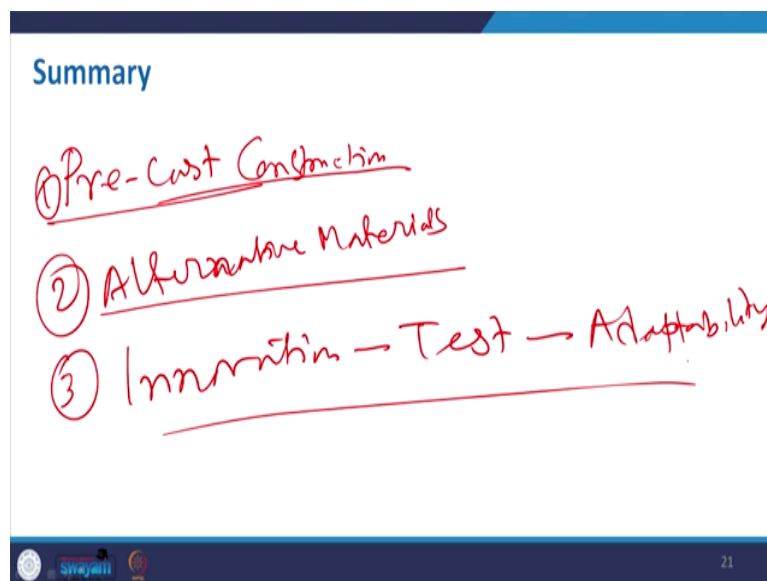 Summary
① Pre-Cast Construction
② Alternative Materials
③ Innovation - Test - Adaptability
swayam
21